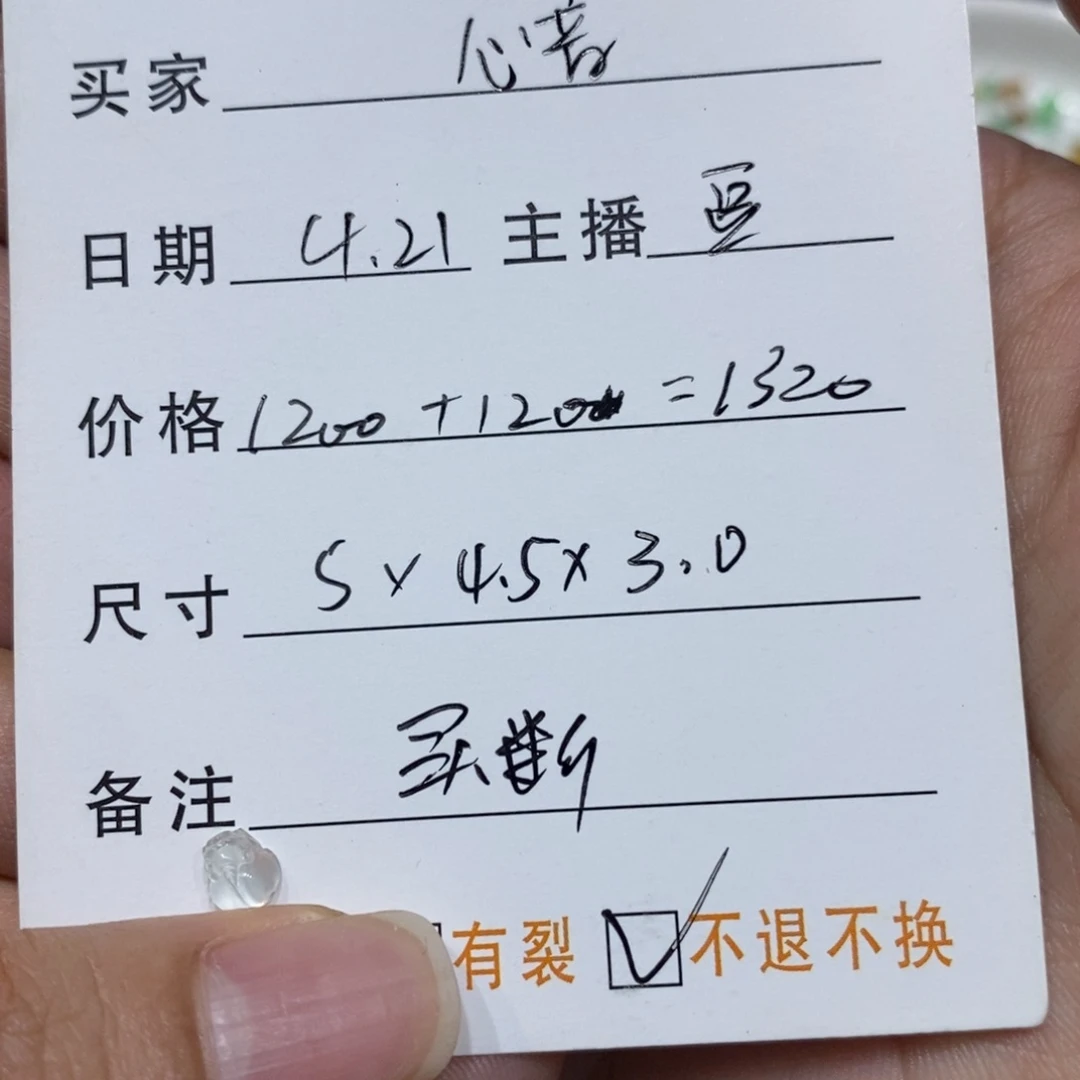 买家 心语
日期 4.21 主播 豆
价格 1200 + 120 = 1320
尺寸 5 x 4.5 x 3.0
备注 买断
有裂 不退不换